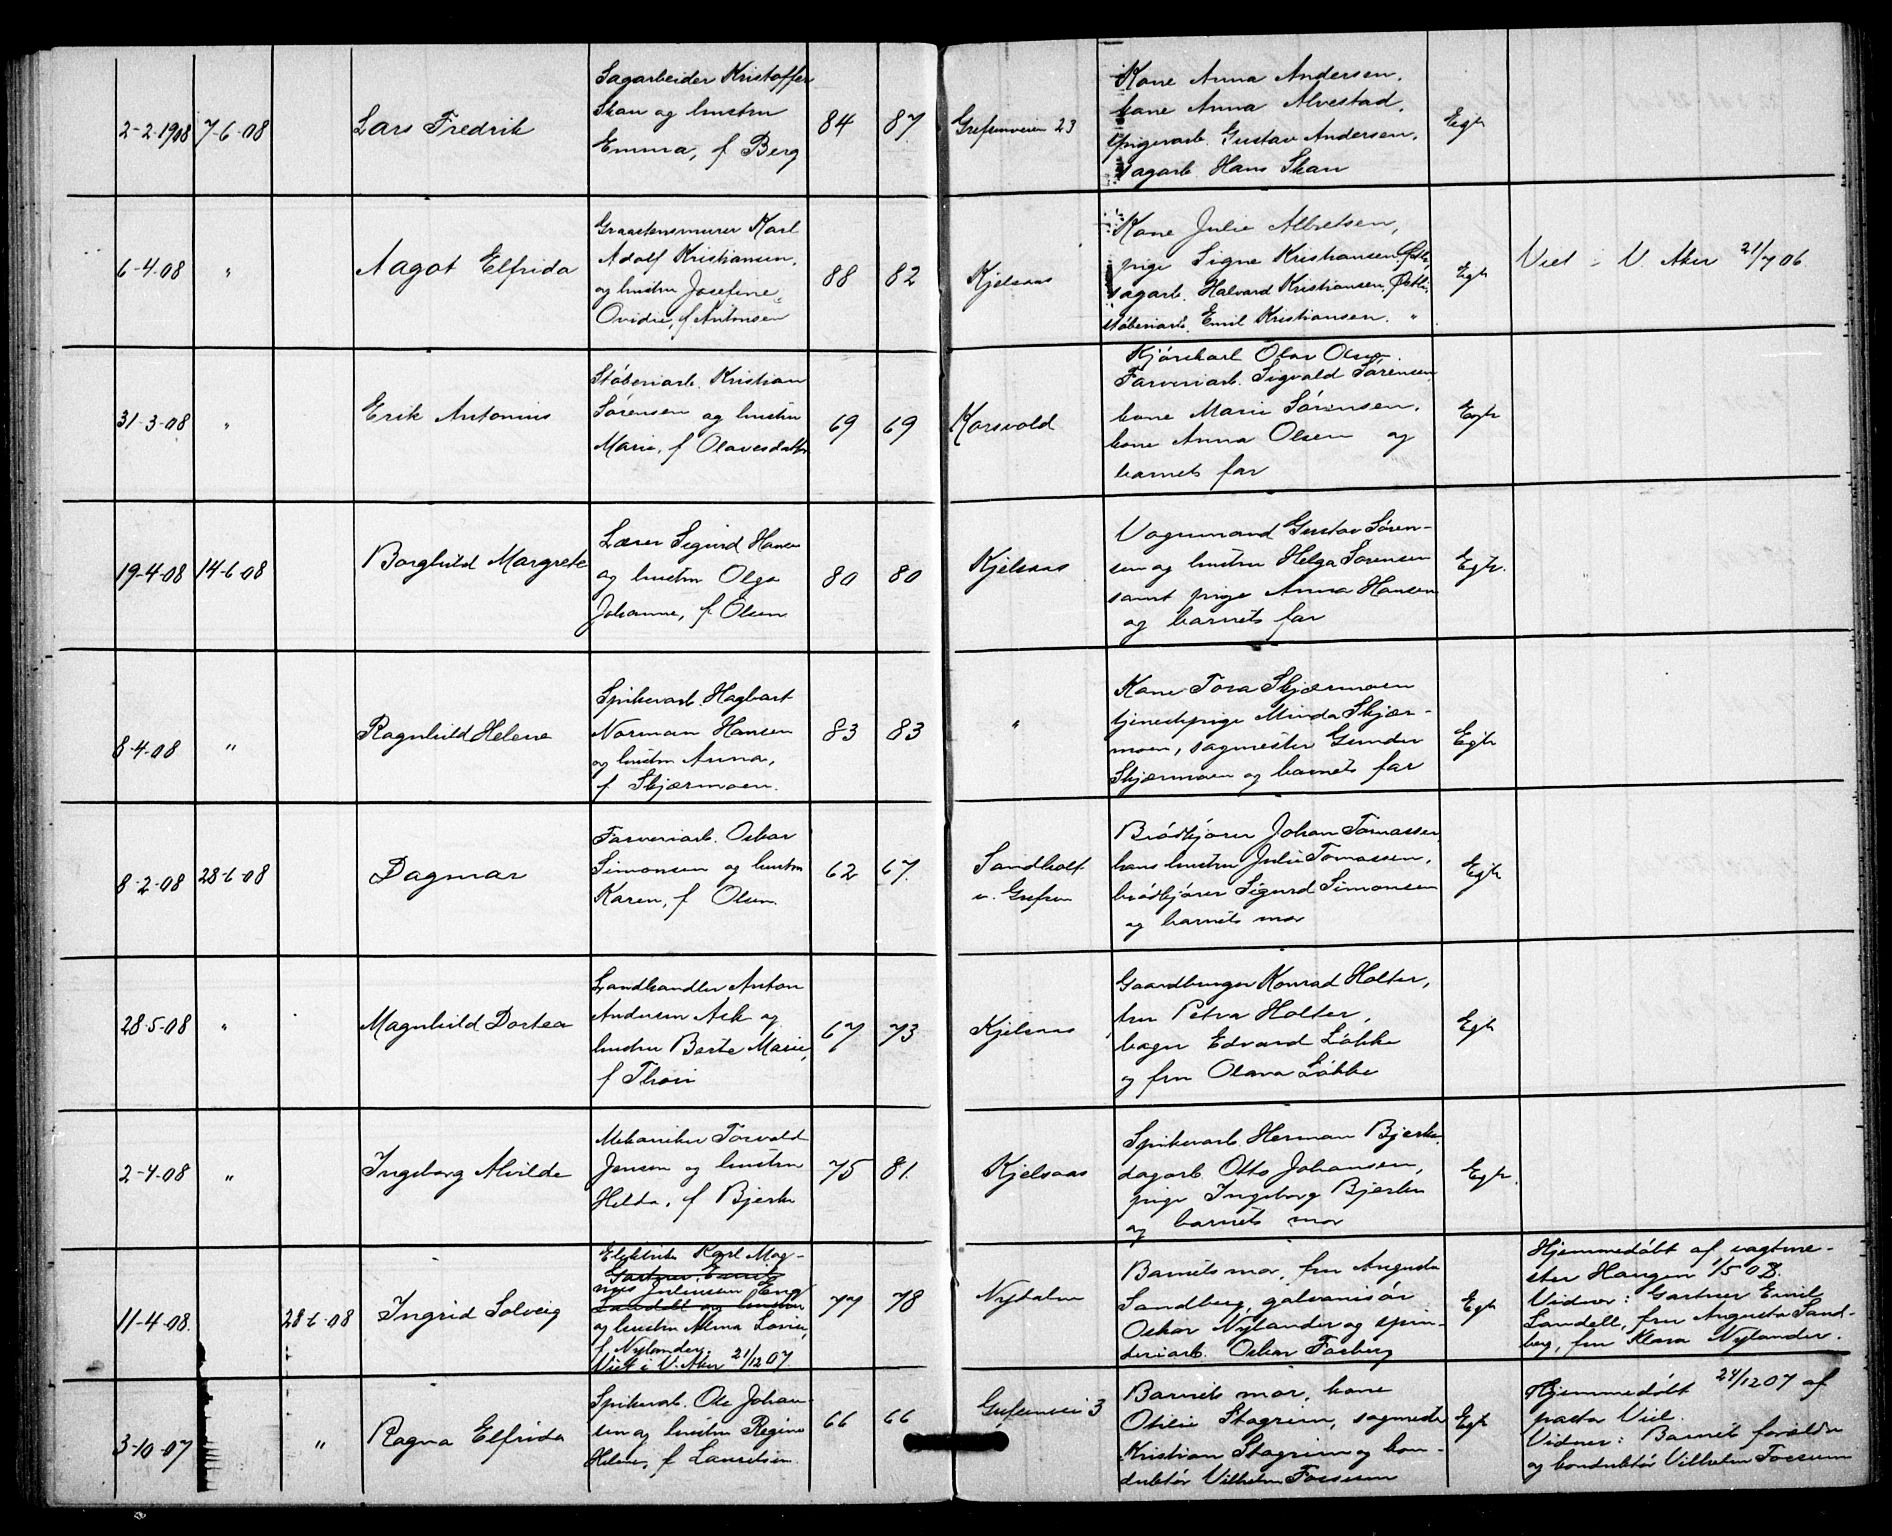 2-2-1908 7-6-08 Lars Fredrik
Sagarbeider Kristoffer
Skau og hustru
Emma, f Berg
84 87. Grefsenveien 23
Kone Anna Andersen,
kone Anna Alvestad,
Gustav Andersen,
sagarb. Hans Skau
Egte
6-4-08 " Aagot Elfrida
Graastensmurer Karl
Adolf Kristiansen,
og hustru Josefine
Ovidie, f Antonsen
88 82 Kjelsaas
Kone Julie Albretsen,
pige Signe Kristiansen,
sagarb. Halvard Kristiansen,
støberiarb. Emil Kristiansen. "
Egte
Viet i V. Aker 21/7 06
31-3-08 " Erik Antonius
Støberiarb. Kristian
Sørensen og hustru
Marie, f Olavesdatter
69 69 Korsvold
Kjørekarl Olav Olsen.
Farveriarb. Sigvald Sørensen,
kone Marie Sørensen,
kone Anna Olsen og
barnets far
Egte
19-4-08 14-6-08 Borghild Margrete
Lærer Sigurd Hansen
og hustru Olga
Johanne, f. Olsen
80 80 Kjelsaas
Vognmand Gustav Søren-
sen og hustru Helga Sørensen
samt pige Anna Hansen
og barnets far
Egte.
8-4-08 " Ragnhild Helene
Spikerarb. Hagbart
Norman Hansen
og hustru Anna,
f Skjærmoen.
83 83 "
Kone Tora Skjærmoen
tjenestepige Minda Skjær-
moen, sagmester Gunder
Skjærmoen og barnets far
Egte
8-2-08 28-6-08 Dagmar
Farveriarb. Oskar
Simonsen og hustru
Karen, f Olsen.
62 67. Sandholt
v. Grefsen
Brødkjører Johan Tomassen,
hans hustru Julie Tomassen,
brødkjører Sigurd Simonsen
og barnets mor
Egte
28-5-08 " Magnhild Dortea
Landhandler Anton
Andersen Ask og
hustru Marie,
f Thori
67 73 Kjelsaas
Gaardbruger Konrad Holter,
fru Petra Holter,
Edvard Løkke
og fru Olava Løkke
Egte
2-4-08 " Ingeborg Alvilde
Mekaniker Torvald
Jensen og hustru
Hilda, f Bjerke
75 81. Kjelsaas
Spikerarb. Herman Bjerke,
dagarb. Otto Johansen,
pige Ingeborg Bjerke
og barnets mor
Egte.
11-4-08. 28-6-08 Ingrid Solveig
Elektriker Karl Mag-
Gartner Emil
nus Julensen Eng
Landell og hustru
og hustru Alma Lovise,
f. Nylander.
Viet i V. Aker 21/12 07.
77 78 Nydalen
Barnets mor, fru Augusta
Sandberg, galvanisør
Oskar Nylander og spin-
deriarb. Oskar Forberg
Egte
Hjemmedøbt af vagtme-
ster Haugen 1/5 08.
Vidner: Gartner Emil
Landell, fru Augusta Sand-
berg, fru Klara Nylander.
3-10-07 " Ragna Elfrida
Spikerarb. Ole Johan-
sen og hustru Regine
Helene, f Lauritsen.
66 66 Grefsenvei 3
Barnets mor, kone
Otilie Stagrim, sagmester
Kristian Stagrim og kon-
duktør Vilhelm Fossum
Egte
Hjemmedøbt 24/12 07 af
pastor Viel.
Vidner: Barnets forældre
og konduktør Vilhelm Fossum